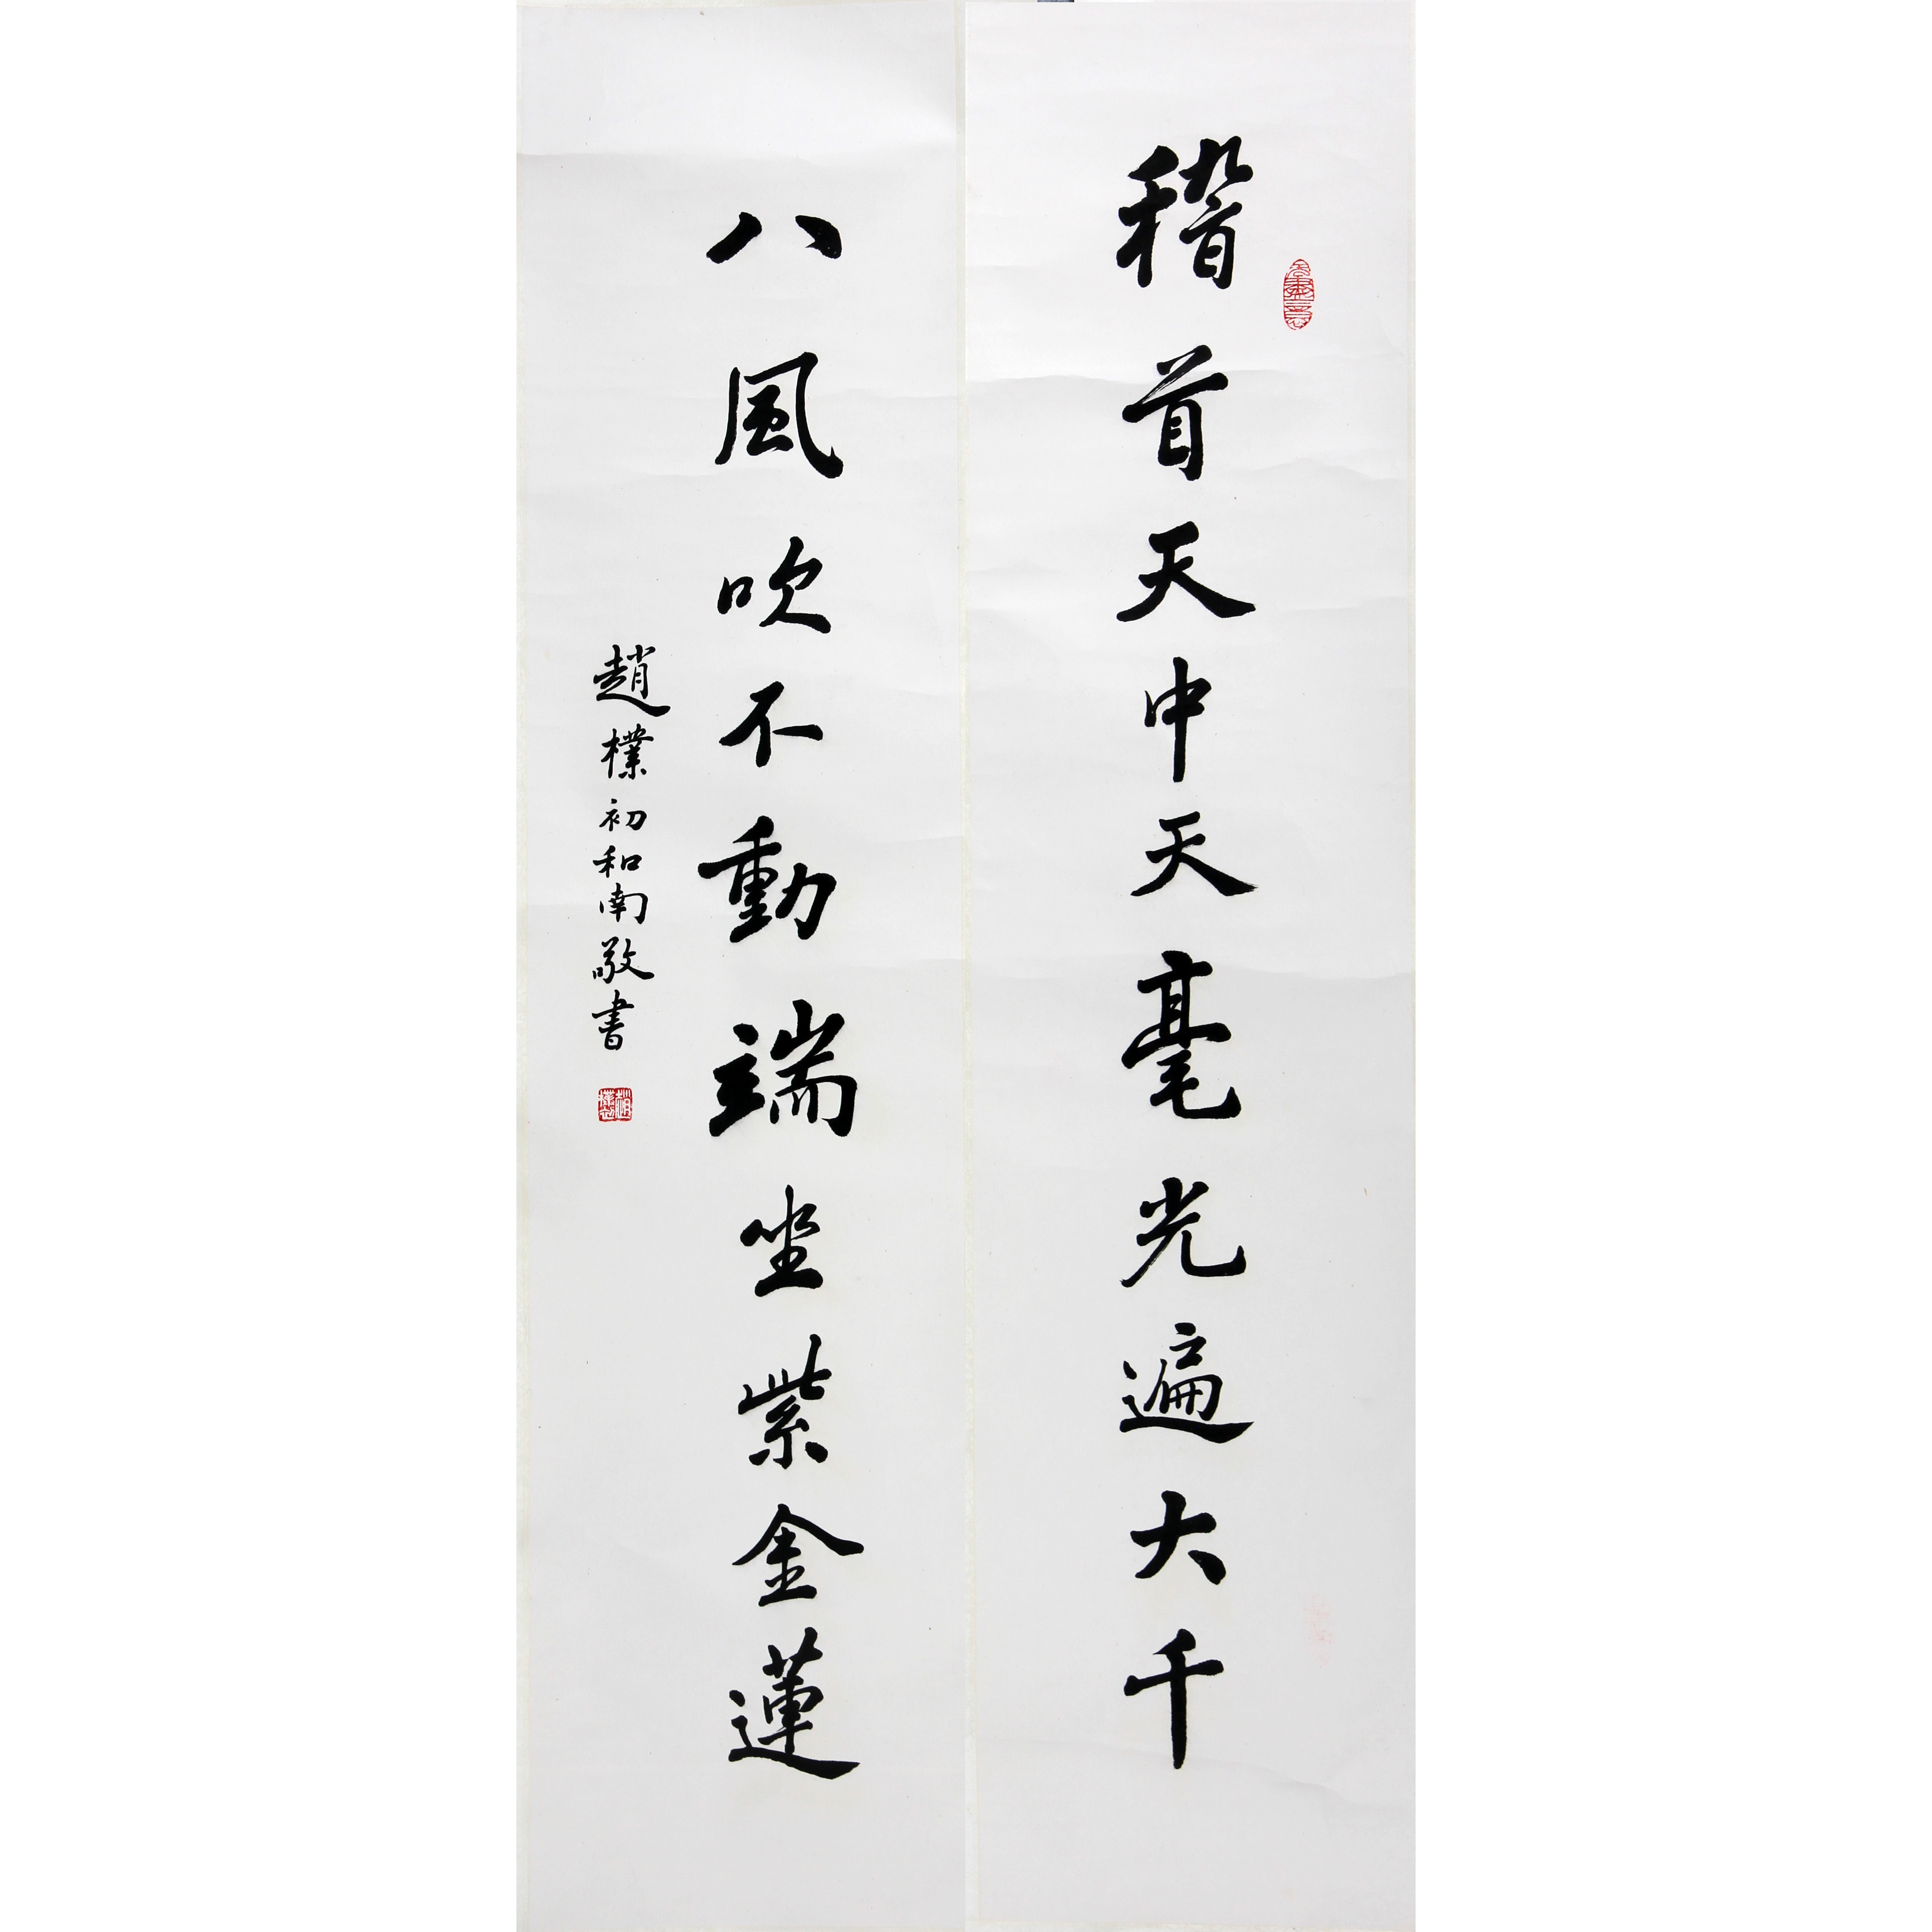 稽首天中天毫光遍大千
八風吹不動端坐紫金蓮
趙樸初和南敬書
趙樸初